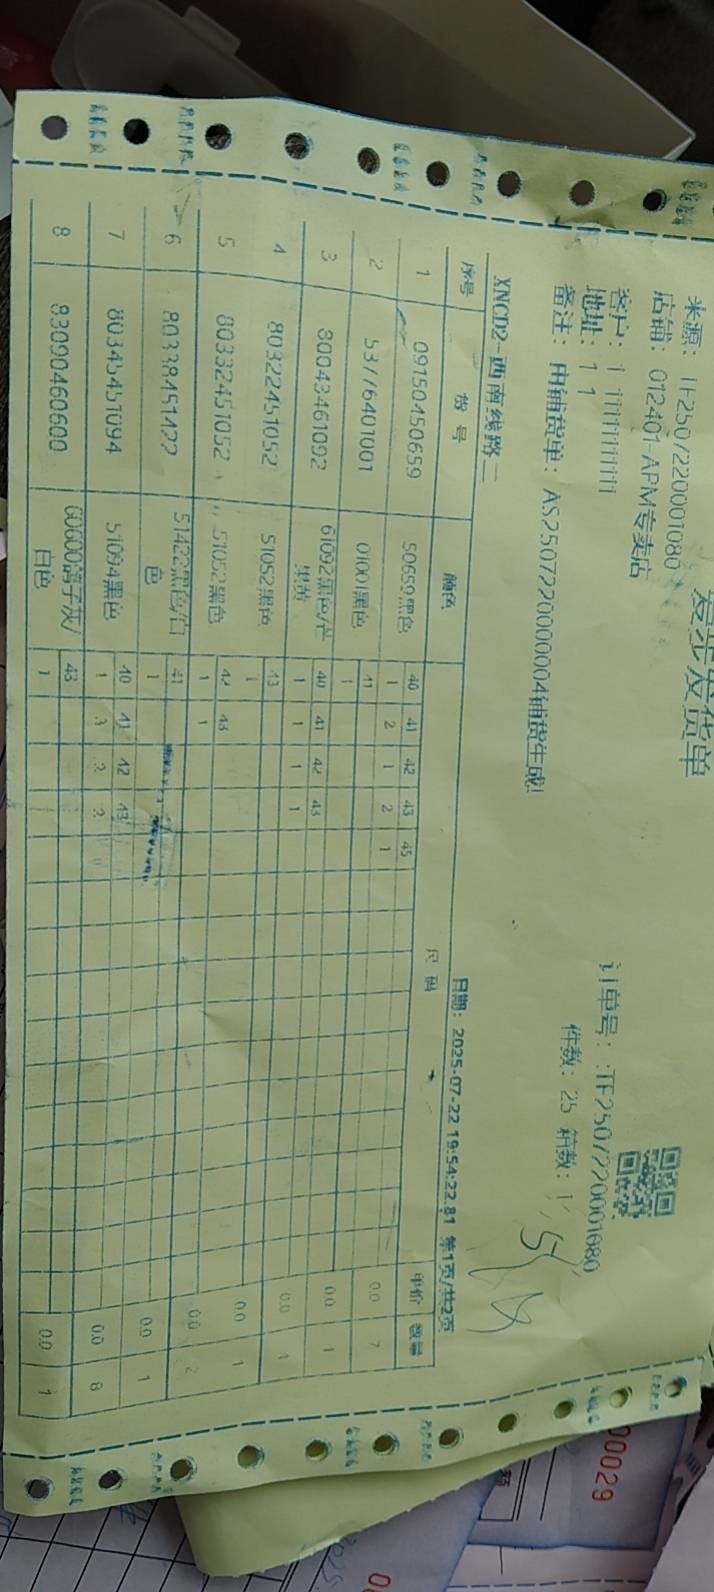 发货单
来源：TF2507220001080
店铺：012401-APM专卖店
订单号：:TF2507220001080
客户：1 11111111111
地址：1 1
件数：25 箱数：1
备注：用铺货单：AS250722000004铺货生成!
XNCD2-西南线路二
日期：2025-07-22 19:54:22.81 第1页/共2页
序号 货号 颜色 尺码 单价 数量
40 41 42 43 45
1 09150450659 50659黑色 1 2 1 2 1 0.0 7
41
2 53776401001 01001黑色 1 0.0 1
40 41 42 43
3 80043461092 61092黑色/芒果黄 1 1 1 1 0.0 4
43
4 80322451052 51052黑色 1 0.0 1
42 43
5 80332451052 51052黑色 1 1 0.0 2
41
6 80338451422 51422黑色/白色 1 0.0 1
40 41 42 43
7 80345451094 51094黑色 1 3 2 2 0.0 8
43
8 83090460600 60600离子灰/白色 1 0.0 1
00029